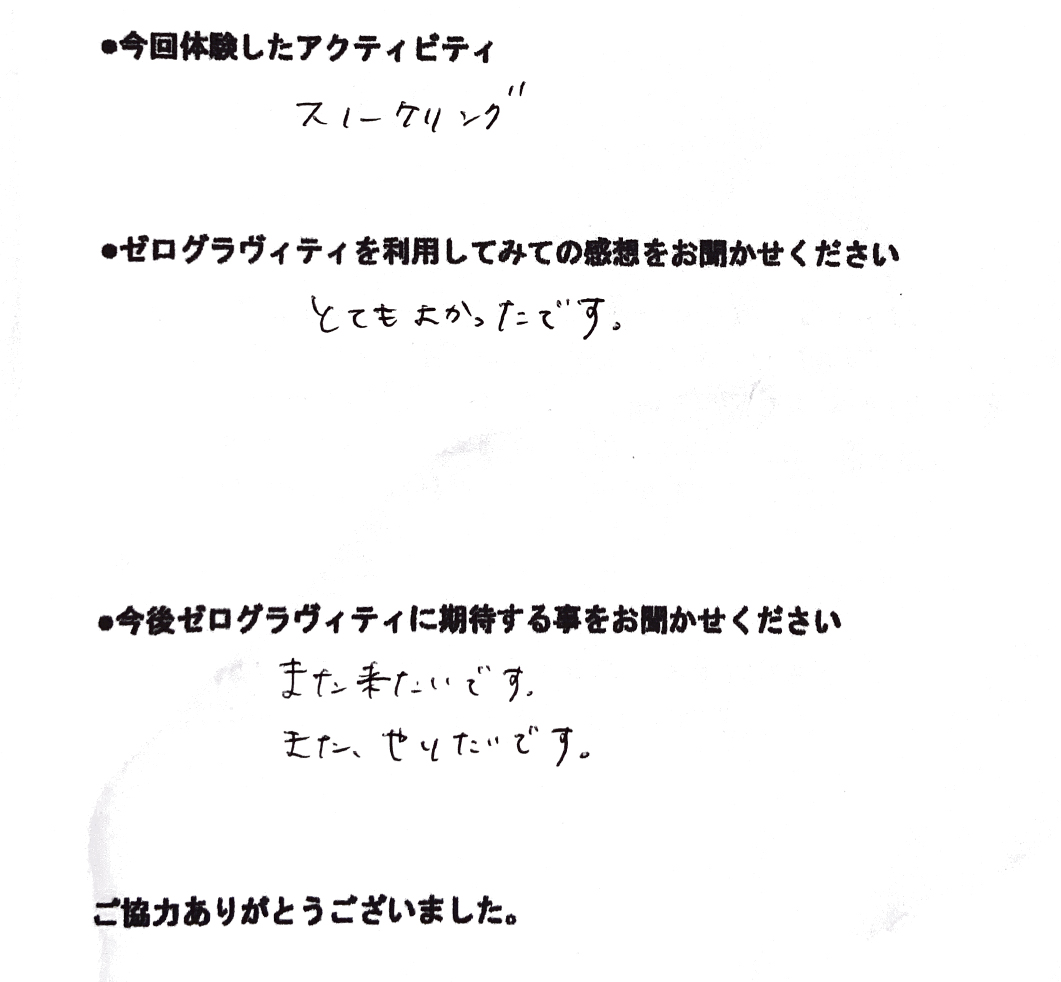 ●今回体験したアクティビティ
スノーケリング
●ゼログラヴィティを利用してみての感想をお聞かせください
とてもよかったです。
●今後ゼログラヴィティに期待する事をお聞かせください
また来たいです。
また、やりたいです。
ご協力ありがとうございました。